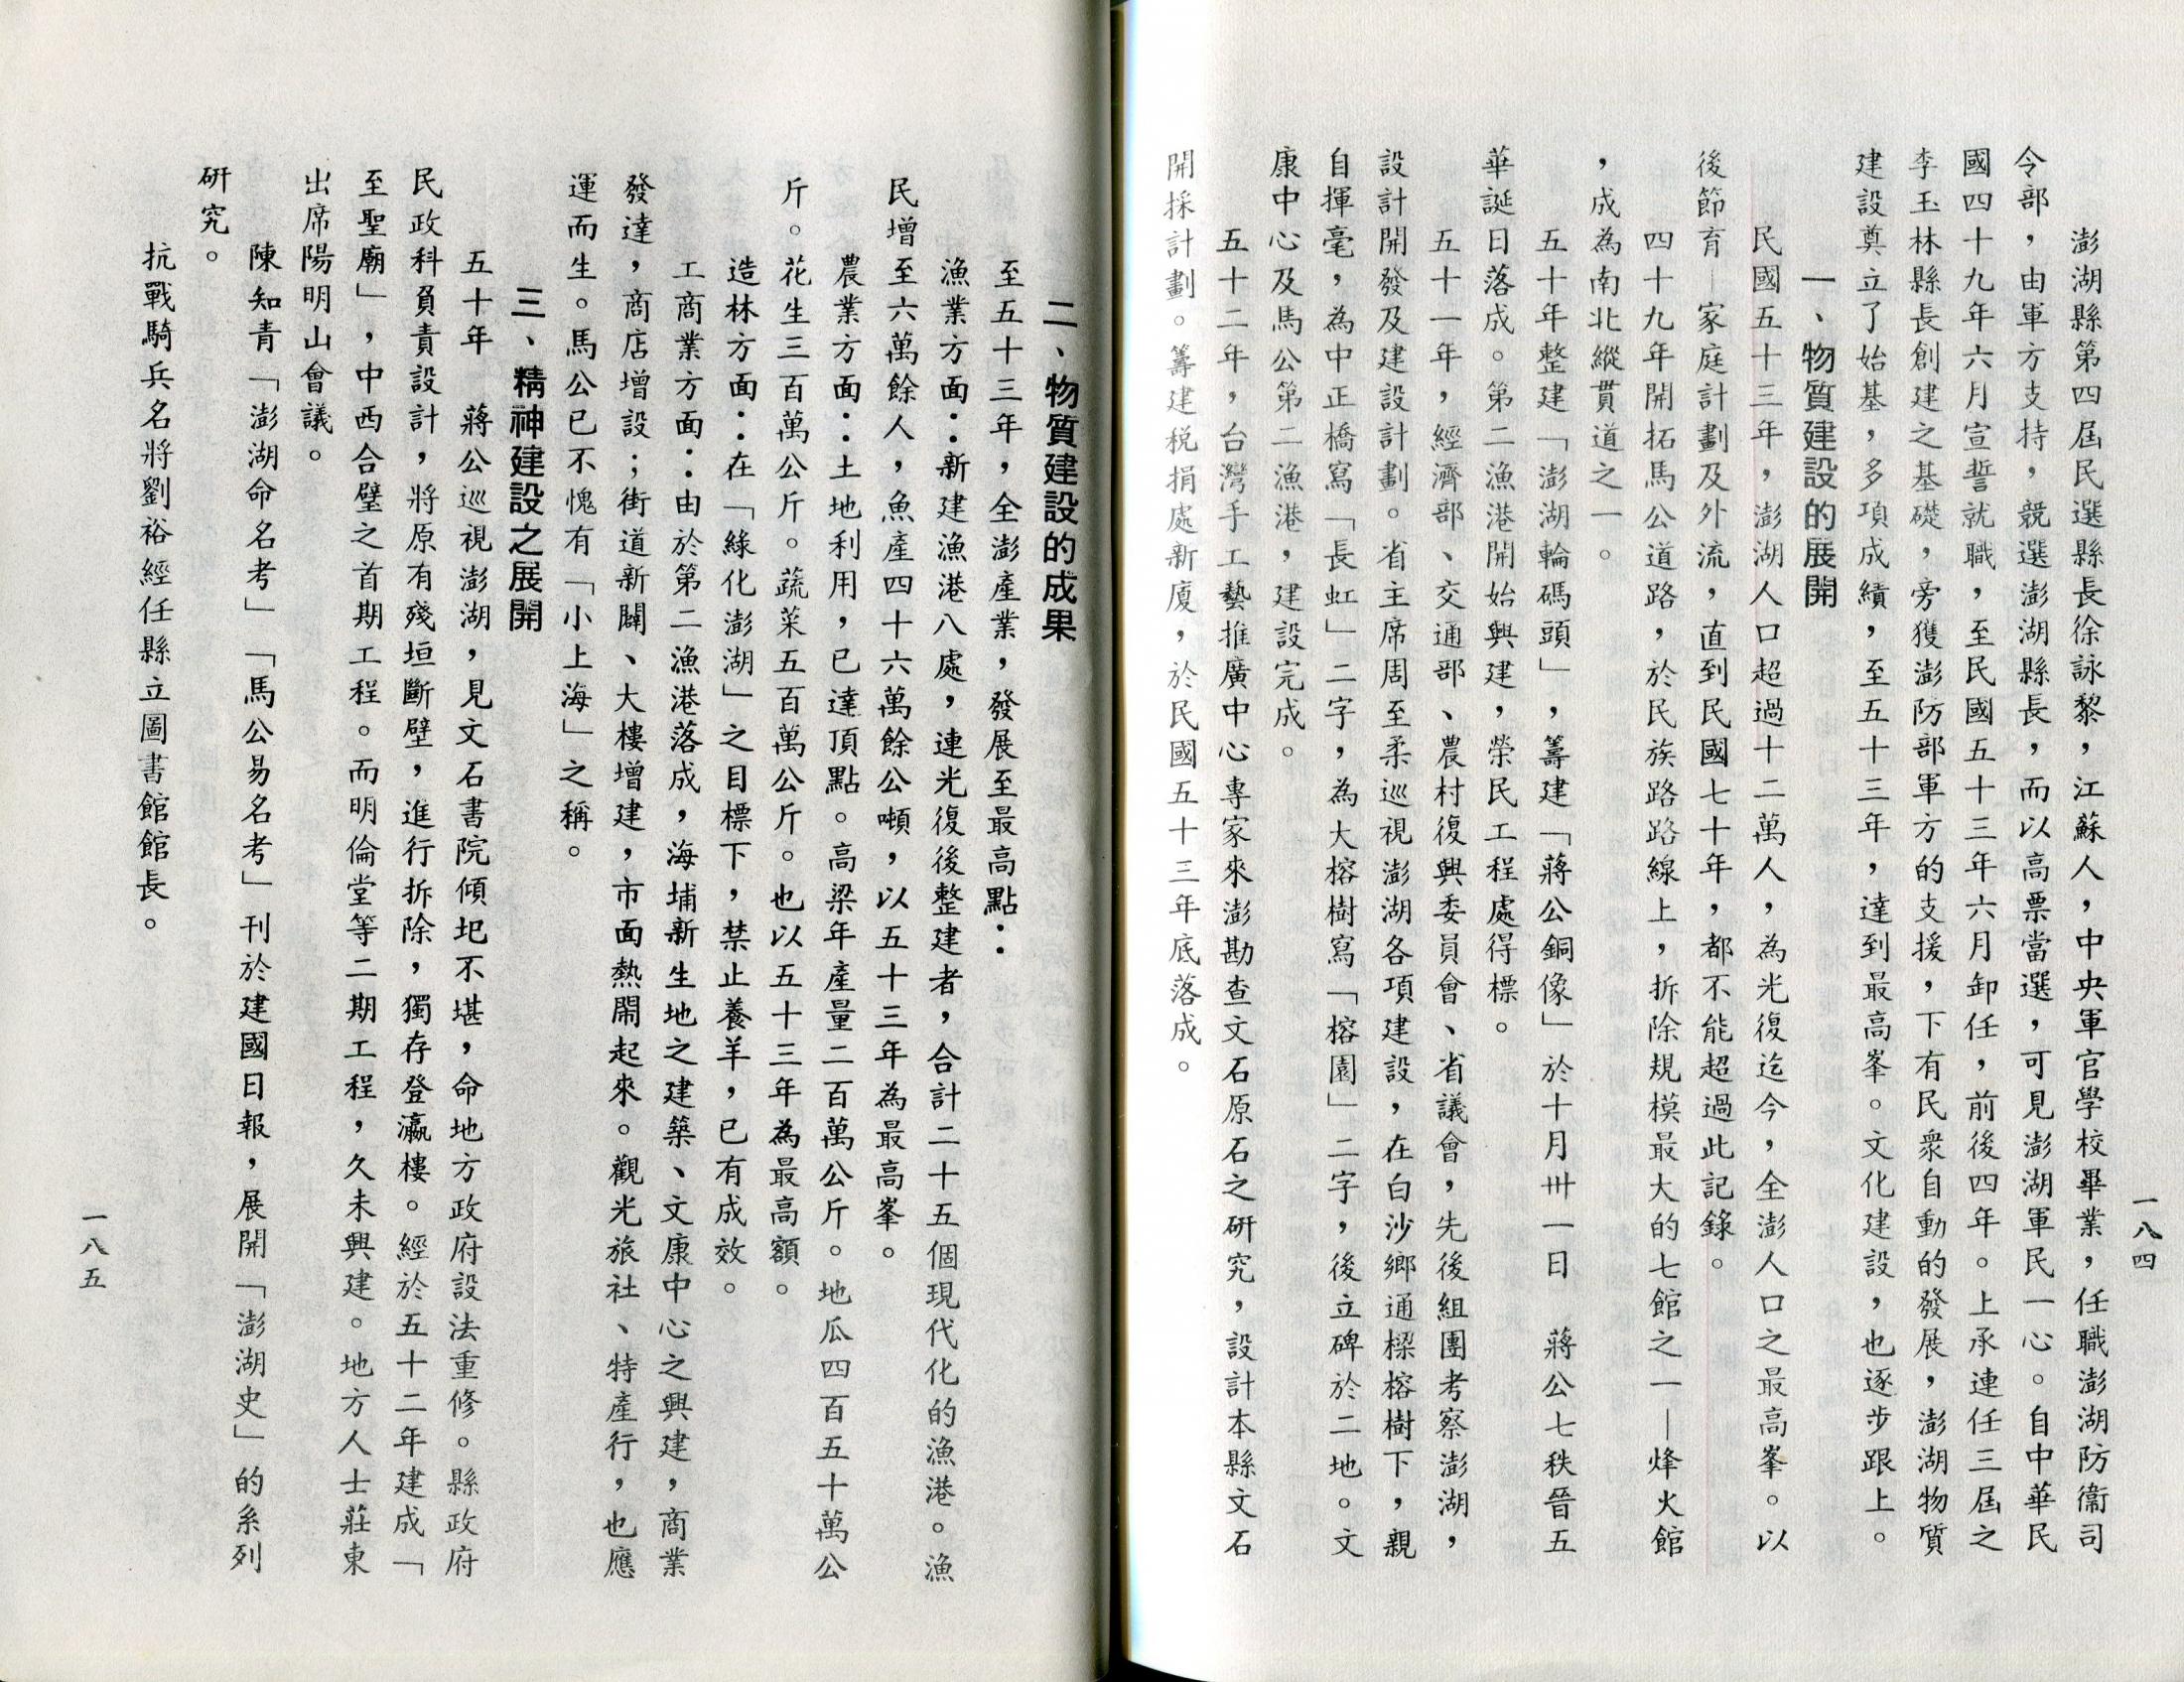 一八四
澎湖縣第四屆民選縣長徐詠黎，江蘇人，中央軍官學校畢業，任職澎湖防衞司
令部，由軍方支持，競選澎湖縣長，而以高票當選，可見澎湖軍民一心。自中華民
國四十九年六月宣誓就職，至民國五十三年六月卸任，前後四年。上承連任三屆之
李玉林縣長創建之基礎，旁獲澎防部軍方的支援，下有民衆自動的發展，澎湖物質
建設奠立了始基，多項成績，至五十三年，達到最高峯。文化建設，也逐步跟上。
一、物質建設的展開
民國五十三年，澎湖人口超過十二萬人，為光復迄今，全澎人口之最高峯。以
後節育—家庭計劃及外流，直到民國七十年，都不能超過此記錄。
四十九年開拓馬公道路，於民族路路線上，拆除規模最大的七館之一—烽火館
，成為南北縱貫道之一。
五十年整建「澎湖輪碼頭」，籌建「蔣公銅像」於十月卅一日　蔣公七秩晉五
華誕日落成。第二漁港開始興建，榮民工程處得標。
五十一年，經濟部、交通部、農村復興委員會、省議會，先後組團考察澎湖，
設計開發及建設計劃。省主席周至柔巡視澎湖各項建設，在白沙鄉通樑榕樹下，親
自揮毫，為中正橋寫「長虹」二字，為大榕樹寫「榕園」二字，後立碑於二地。文
康中心及馬公第二漁港，建設完成。
五十二年，台灣手工藝推廣中心專家來澎勘查文石原石之研究，設計本縣文石
開採計劃。籌建稅捐處新廈，於民國五十三年底落成。
二、物質建設的成果
至五十三年，全澎產業，發展至最高點：
漁業方面：新建漁港八處，連光復後整建者，合計二十五個現代化的漁港。漁
民增至六萬餘人，魚產四十六萬餘公噸，以五十三年為最高峯。
農業方面：土地利用，已達頂點。高梁年產量二百萬公斤。地瓜四百五十萬公
斤。花生三百萬公斤。蔬菜五百萬公斤。也以五十三年為最高額。
造林方面：在「綠化澎湖」之目標下，禁止養羊，已有成效。
工商業方面：由於第二漁港落成，海埔新生地之建築、文康中心之興建，商業
發達，商店增設；街道新闢、大樓增建，市面熱鬧起來。觀光旅社、特產行，也應
運而生。馬公已不愧有「小上海」之稱。
三、精神建設之展開
五十年　蔣公巡視澎湖，見文石書院傾圯不堪，命地方政府設法重修。縣政府
民政科負責設計，將原有殘垣斷壁，進行拆除，獨存登瀛樓。經於五十二年建成「
至聖廟」，中西合璧之首期工程。而明倫堂等二期工程，久未興建。地方人士莊東
出席陽明山會議。
陳知青「澎湖命名考」「馬公易名考」刊於建國日報，展開「澎湖史」的系列
研究。
抗戰騎兵名將劉裕經任縣立圖書館館長。
一八五